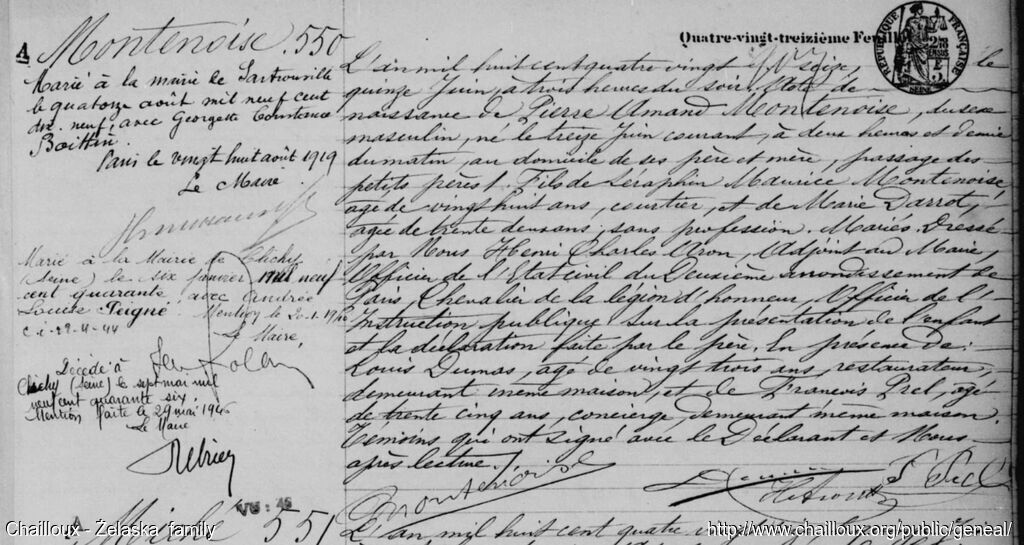 A Montenoise. 550
Marié à la mairie de Sartrouville
le quatorze août mil neuf cent
dix. neuf, avec Georgette Constance
Boittin.
Paris le vingt huit août 1919
Le Maire
Marié à la Mairie de Clichy
(Seine) le six janvier mil neuf
cent quarante avec Andrée
Louise Peigné. Mention le 20-1-1940
Le Maire,
Décédé à
Clichy (Seine) le sept mai mil
neuf cent quarante six.
Mention faite le 29 mai 1946
Le Maire
Quatre-vingt-treizième Feuillet
RÉPUBLIQUE FRANÇAISE
SEINE
L'an mil huit cent quatre vingt seize, le
quinze Juin, à trois heures du soir. Acte de
naissance de Pierre Amand Montenoise, du sexe
masculin, né le treize Juin courant, à deux heures et demie
du matin, au domicile de ses père et mère, passage des
petits pères 1. Fils de Séraphin Maurice Montenoise
âgé de vingt huit ans, courtier, et de Marie Darrot,
âgée de trente deux ans, sans profession. Mariés. Dressé
par Nous Henri Charles Aron, Adjoint au Maire,
Officier de l'Etat civil du Deuxième arrondissement de
Paris, Chevalier de la légion d'honneur, Officier de l'
Instruction publique sur la présentation de l'enfant
et la déclaration faite par le père. En présence de:
Louis Dumas, âgé de vingt trois ans, restaurateur,
demeurant même maison, et de François Prel, âgé
de trente cinq ans, concierge, demeurant même maison
Témoins qui ont signé avec le Déclarant et Nous
après lecture./.
Montenoise
VU: 46
551
L'an mil huit cent quatre vingt
Chailloux - Zelaska family
http://www.chailloux.org/public/geneal/